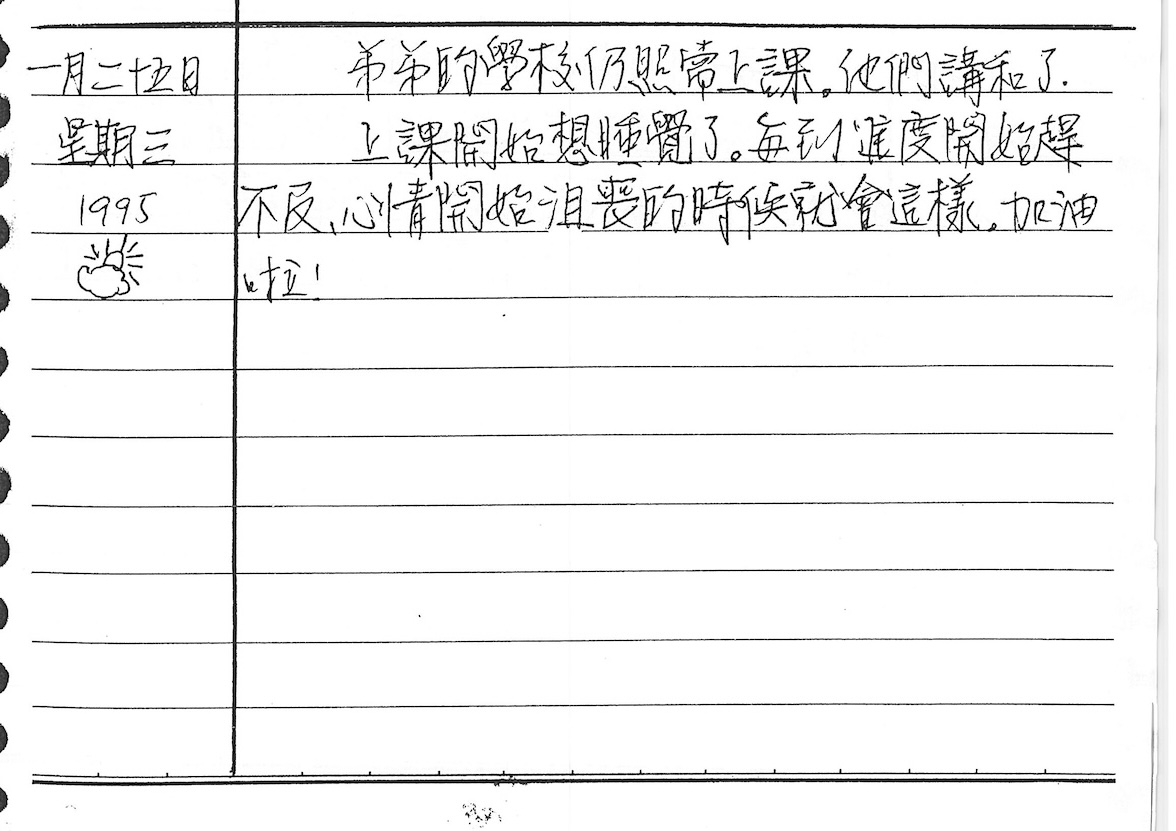 一月二十五日
星期三
1995
弟弟的學校仍照常上課。他們講和了.
上課開始想睡覺了。每到進度開始趕
不及、心情開始沮喪的時候就會這樣。加油
啦!